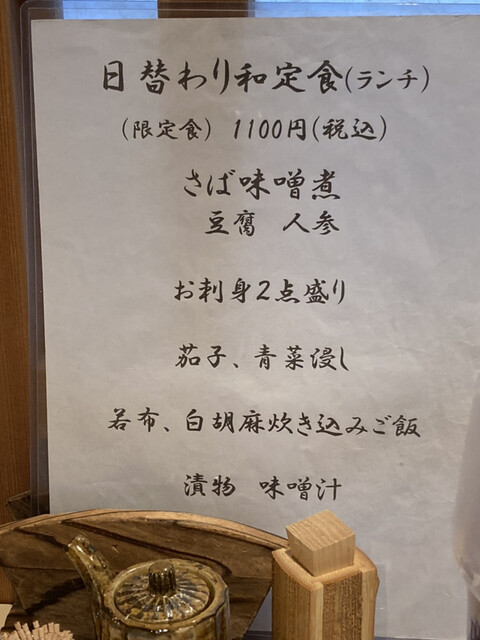 日替わり和定食(ランチ)
(限定食) 1100円(税込)
さば味噌煮
豆腐 人参
お刺身2点盛り
茄子、青菜浸し
若布、白胡麻炊き込みご飯
漬物 味噌汁